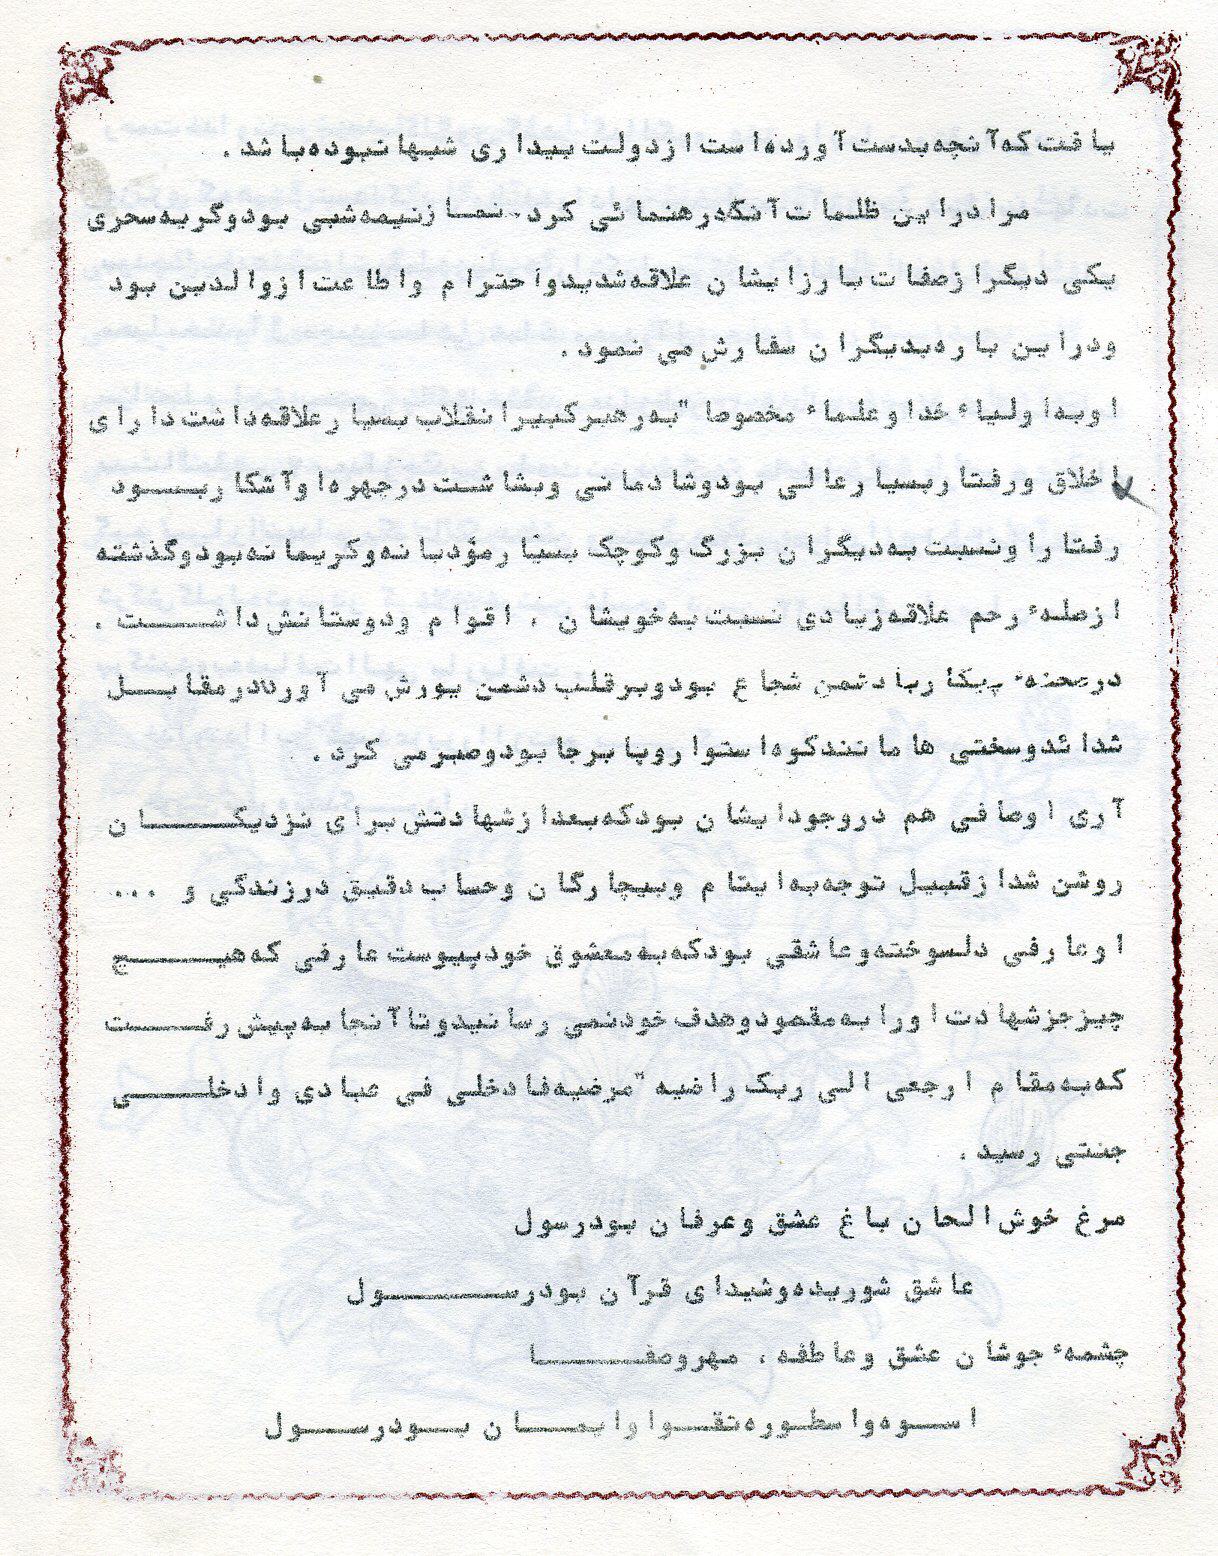 یافت که آنچه بدست آورده است از دولت بیداری شبها نبوده باشد .
مرا در این ظلمات آنکه رهنمائی کرد - نماز نیمه شبی بود و گریه سحری
یکی دیگر از صفات بارز ایشان علاقه شدید و احترام و اطاعت از والدین بود
و در این باره بدیگران سفارش می نمود .
او به اولیاء خدا و علماء مخصوصا " به رهبر کبیر انقلاب بسیار علاقه داشت دارای
اخلاق و رفتار بسیار عالی بود و شادمانی و بشاشت در چهره او آشکار بـــود
رفتار او نسبت به دیگران بزرگ و کوچک بسیار مؤدبانه و کریمانه بود و گذشته
از صلهء رحم علاقه زیادی نسبت به خویشان ، اقوام و دوستانش داشـــت .
در صحنهء پیکار با دشمن شجاع بود و بر قلب دشمن یورش می آورد در مقابـــل
شدائد و سختی ها مانند کوه استوار و پابرجا بود و صبر می کرد .
آری اوصافی هم در وجود ایشان بود که بعد از شهادتش برای نزدیکـــــان
روشن شد از قبیل توجه به ایتام و بیچارگان و حساب دقیق در زندگی و ...
او عارفی دلسوخته و عاشقی بود که به معشوق خود پیوست عارفی که هیـــــچ
چیز جز شهادت او را به مقصود و هدف خود نمی رسانید و تا آنجا به پیش رفـــت
که به مقام ارجعی الی ربک راضیه " مرضیه فادخلی فی عبادی وادخلـــــی
جنتی رسید .
مرغ خوش الحان باغ عشق و عرفان بود رسول
عاشق شوریده و شیدای قرآن بود رســـــــول
چشمهء جوشان عشق و عاطفه ، مهر و صفـــــا
اســوه و اسطوره تقــوا و ایمــان بــود رســـول